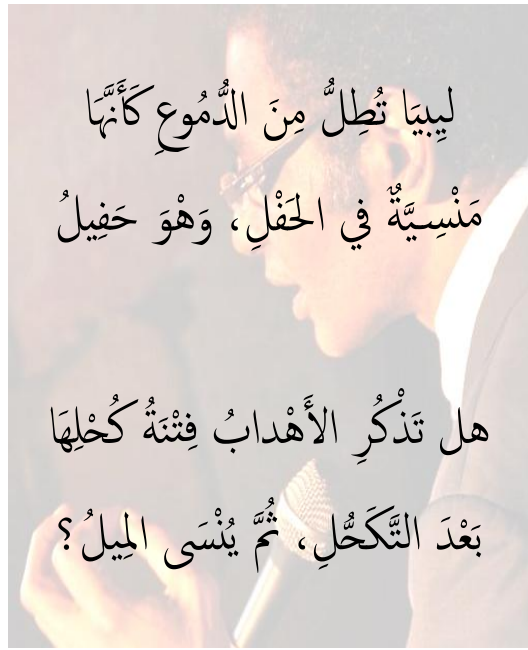 ليِبيَا تُطِلُّ مِنَ الدُّمُوعِ كَأَنَّهَا
مَنْسِيَّةٌ في الحَفْلِ، وَهْوَ حَفِيلُ
هل تَذْكُرِ الأَهْدابُ فِتْنَةُ كُحْلِهَا
بَعْدَ التَّكَحُّلِ، ثُمَّ يُنْسَى المِيلُ؟